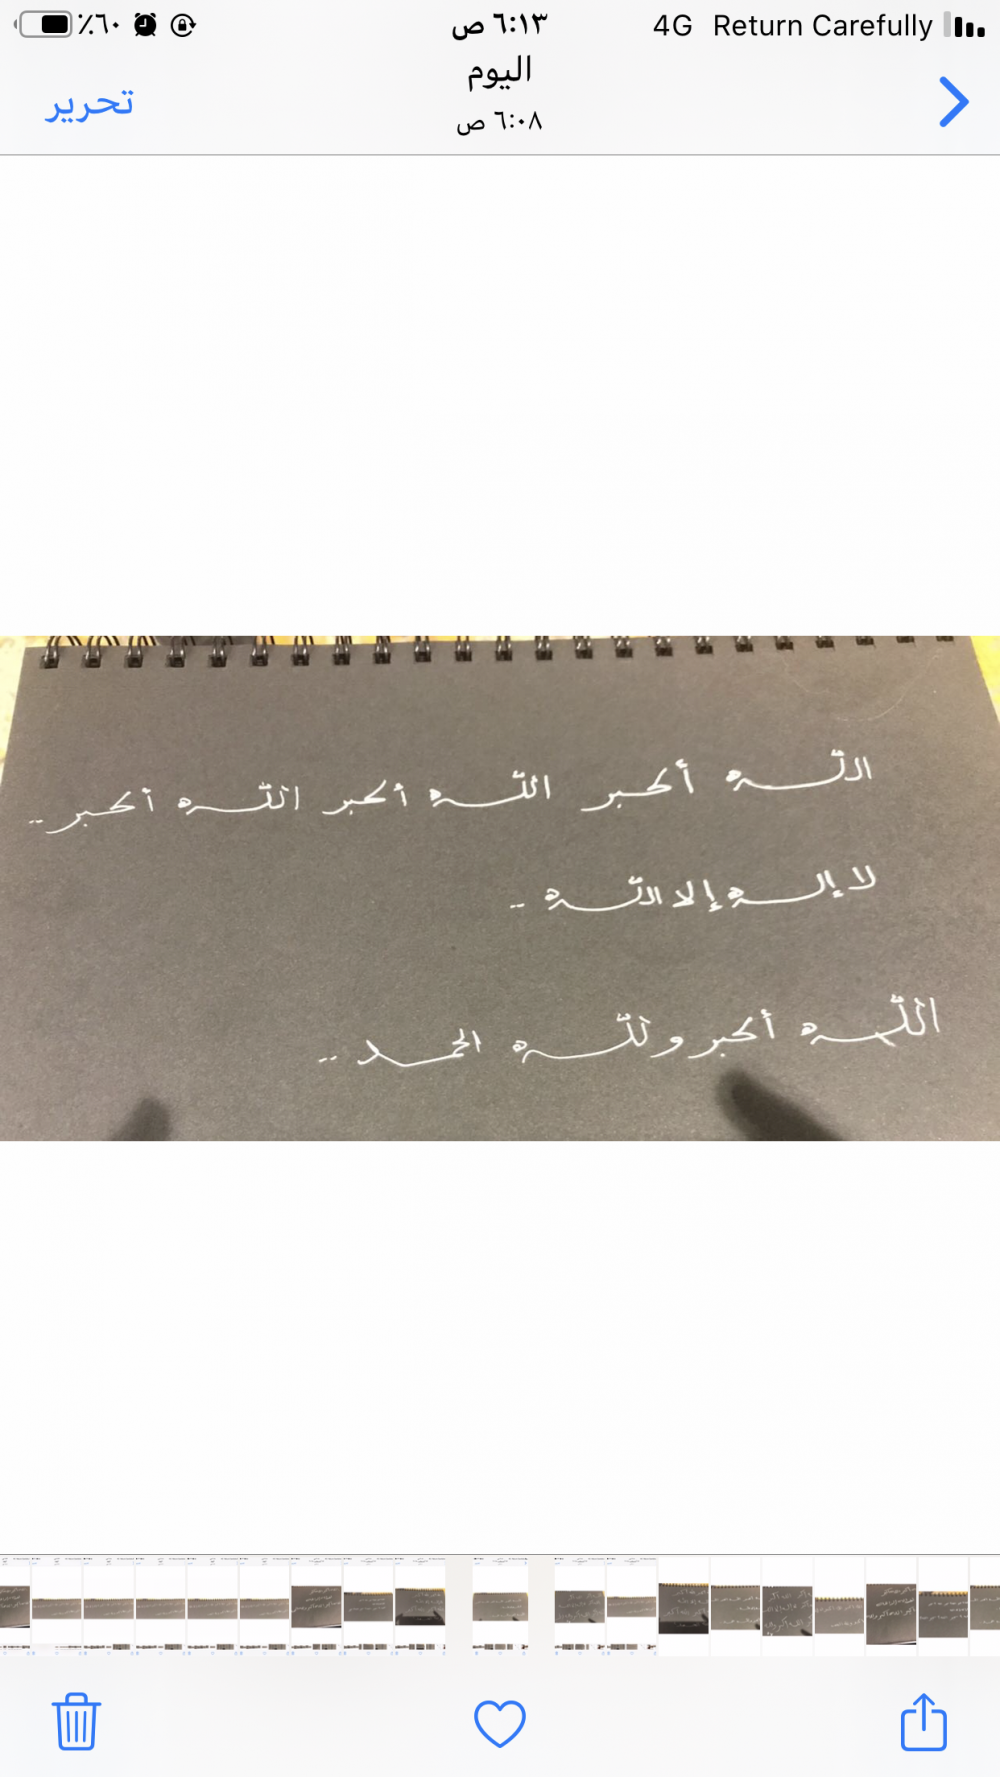 ٪٦٠ ٦:١٣ ص 4G Return Carefully
اليوم
تحرير
٦:٠٨ ص
الله أكبر الله أكبر الله أكبر..
لا إله إلا الله ..
الله أكبر ولله الحمد ..